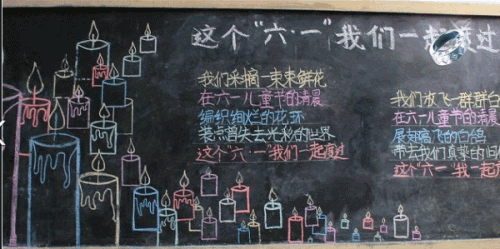 这个“六·一”我们一起度过
我们采摘一束束鲜花
在六一儿童节的清晨
编织绚烂的花环
装点曾失去光彩的世界
这个“六·一”我们一起度过
我们放飞一群群白
在六一儿童节的清晨
展翅翱飞的白鸽
带去我们真挚的
这个“六·一”我一起